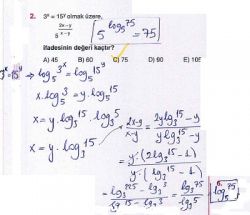 2. 3ˣ = 15ʸ olmak üzere,
5^((2x-y)/(x-y))
ifadesinin değeri kaçtır?
A) 45 B) 60 C) 75 D) 90 E) 105
5^(log₅75) = 75
3ˣ = 15ʸ ⇒ log₃3ˣ = log₃15ʸ
x.log₃3 = y.log₃15
x = y.log₃15 - log₃5
x = y.log₃15
(2x-y)/(x-y) = (2ylog₃15 - y)/(ylog₃15 - y)
= y.(2log₃15 - 1)/(y.(log₃15 - 1))
= (log₃225 - log₃3)/(log₃15 - log₃3) = log₃75/log₃5
log₅75